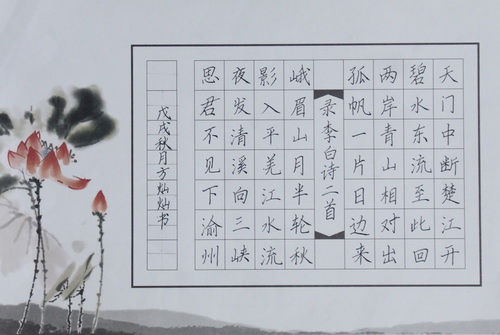 天门中断楚江开
碧水东流至此回
两岸青山相对出
孤帆一片日边来
录李白诗二首
峨眉山月半轮秋
影入平羌江水流
夜发清溪向三峡
思君不见下渝州
戊戌秋月方灿灿书